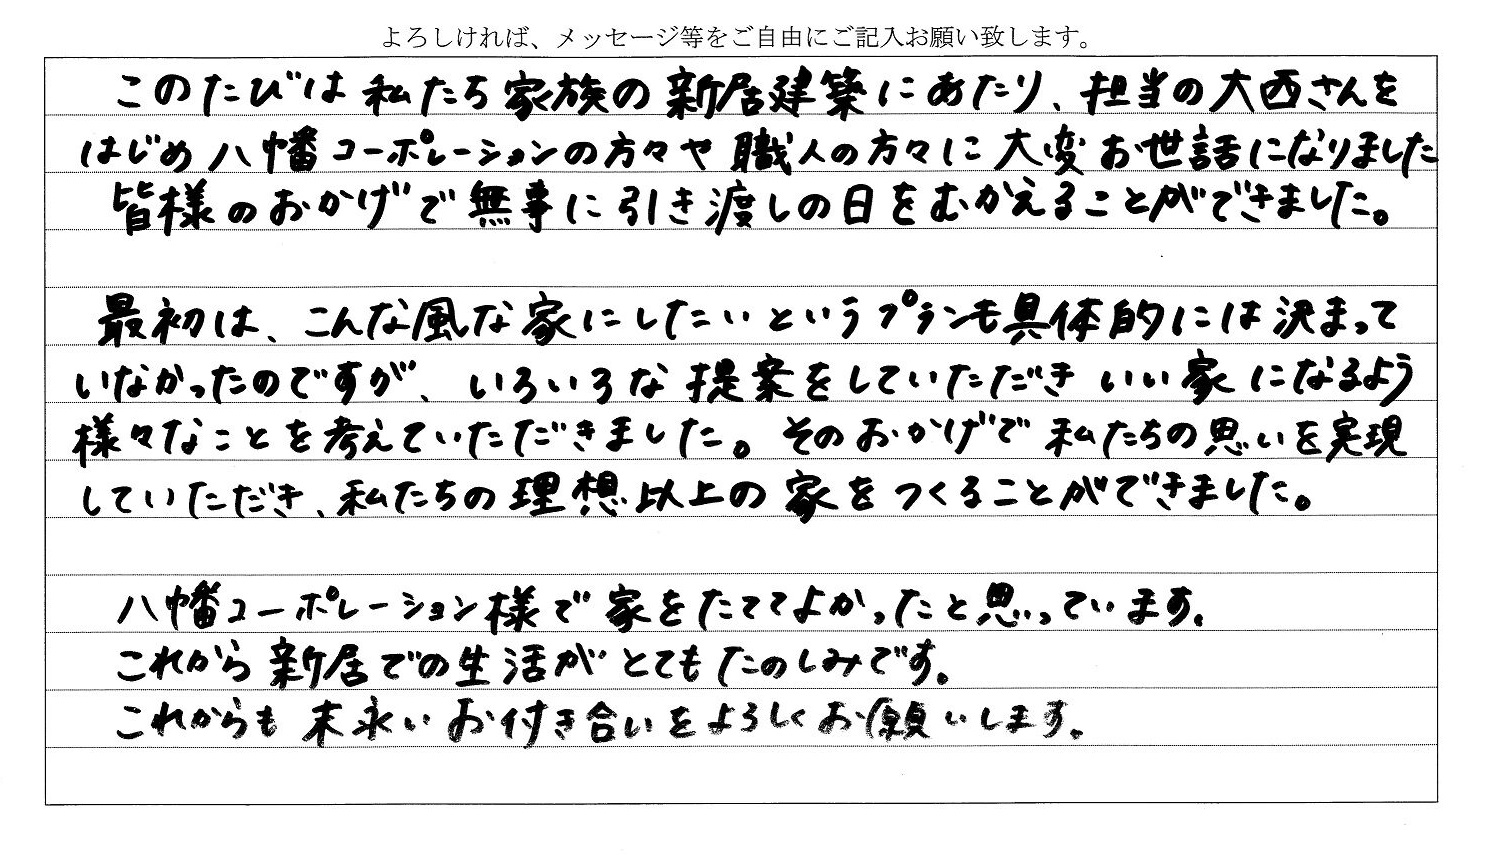 よろしければ、メッセージ等をご自由にご記入お願い致します。
このたびは私たち家族の新居建築にあたり、担当の大西さんを
はじめ八幡コーポレーションの方々や職人の方々に大変お世話になりました
皆様のおかげで無事に引き渡しの日をむかえることができました。
最初は、こんな風な家にしたいというプランも具体的には決まって
いなかったのですが、いろいろな提案をしていただき いい家になるよう
様々なことを考えていただきました。そのおかげで私たちの思いを実現
していただき、私たちの理想以上の家をつくることができました。
八幡コーポレーション様で家をたててよかったと思っています。
これから新居での生活がとてもたのしみです。
これからも末永いお付き合いをよろしくお願いします。